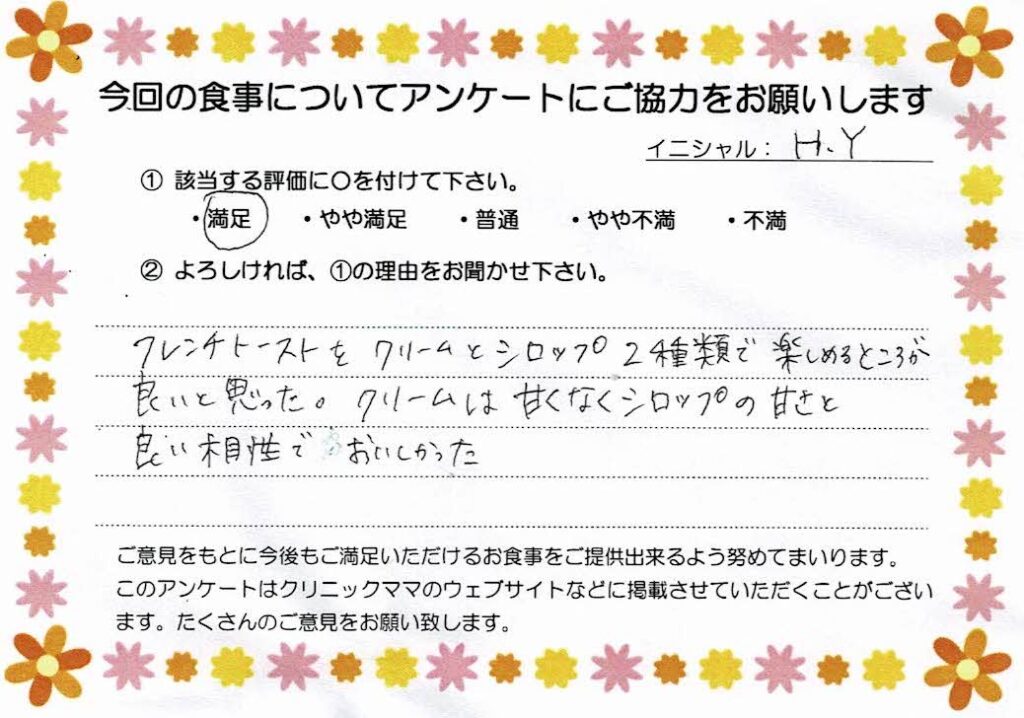 今回の食事についてアンケートにご協力をお願いします
イニシャル： H.Y
① 該当する評価に〇を付けて下さい。
・満足 ・やや満足 ・普通 ・やや不満 ・不満
② よろしければ、①の理由をお聞かせ下さい。
フレンチトーストを クリームとシロップ 2種類で 楽しめるところが
良いと思った。クリームは 甘くなくシロップの 甘さと
良い相性で おいしかった
ご意見をもとに今後もご満足いただけるお食事をご提供出来るよう努めてまいります。
このアンケートはクリニックママのウェブサイトなどに掲載させていただくことがござい
ます。たくさんのご意見をお願い致します。